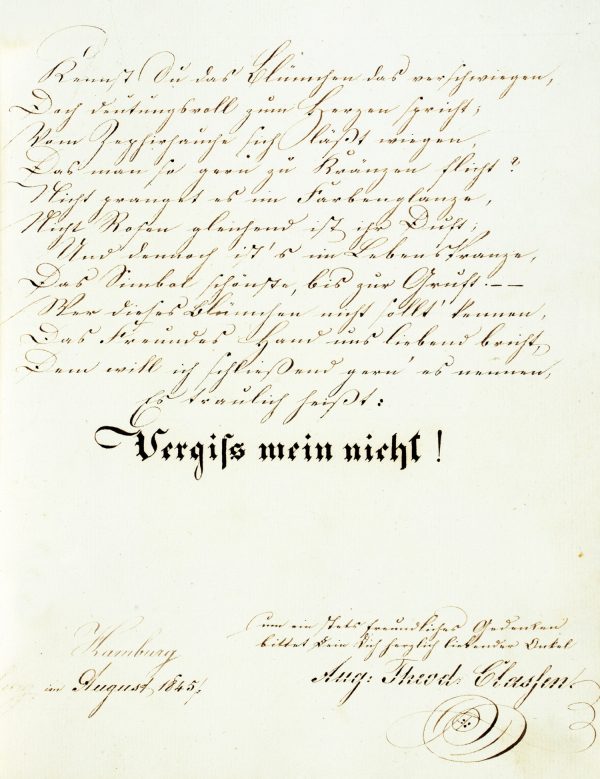 Kennst Du das Blümchen das verschwiegen,
Doch deutungsvoll zum Herzen spricht;
Vom Zephirhauche sich läßt wiegen,
Das man so gern zu Kränzen flicht?
Nicht pranget es im Farbenglanze,
Nicht Rosen gleichend ist ihr Duft;
Und dennoch ist's im Lebenskranze,
Das Simbol schönste, bis zur Gruft. ——
Wer dieses Blümchen nicht sollt' kennen,
Das Freundes Hand uns liebend bricht,
Dem will ich schließend gern' es nennen,
Es traulich heißt:
Vergiss mein nicht!
um ein stets freundliches Gedenken
bittet Dein Dich herzlich liebender Onkel
Aug: Theod: Classen
Hamburg
im August 1845,